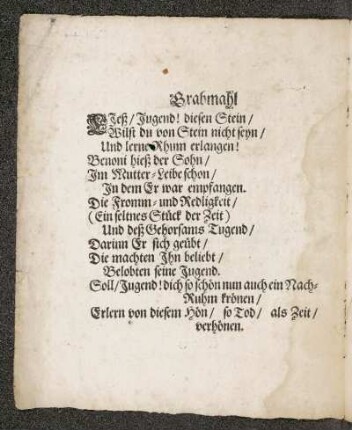 Grabmahl
LIeß/ Jugend! diesen Stein/
Wilst du von Stein nicht seyn/
Und lerne Rhum erlangen!
Benoni hieß der Sohn/
Im Mutter-Leibe schon/
In dem Er war empfangen.
Die Fromm- und Redligkeit/
(Ein seltnes Stück der Zeit)
Und deß Gehorsams Tugend/
Darinn Er sich geübt/
Die machten Ihn beliebt/
Belobten seine Jugend.
Soll/Jugend! dich so schön nun auch ein Nach-
Ruhm krönen/
Erlern von diesem Hön/ so Tod/ als Zeit/
verhönen.